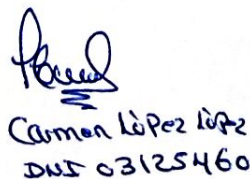 Carmen López López
DNI 03125460